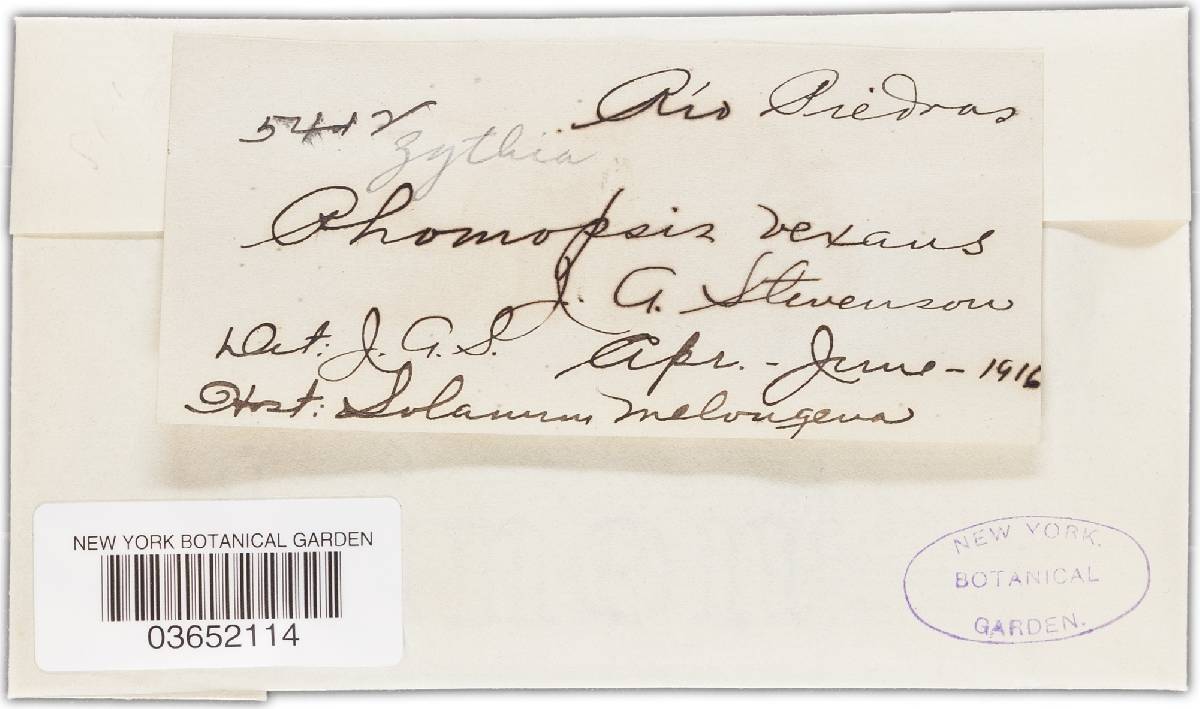 5412 Río Piedras
Zythia
Phomopsis vexans
J. A. Stevenson
Det. J. A. S. Apr. - June - 1916
Host: Solanum melongena
NEW YORK BOTANICAL GARDEN
03652114
NEW YORK.
BOTANICAL
GARDEN.